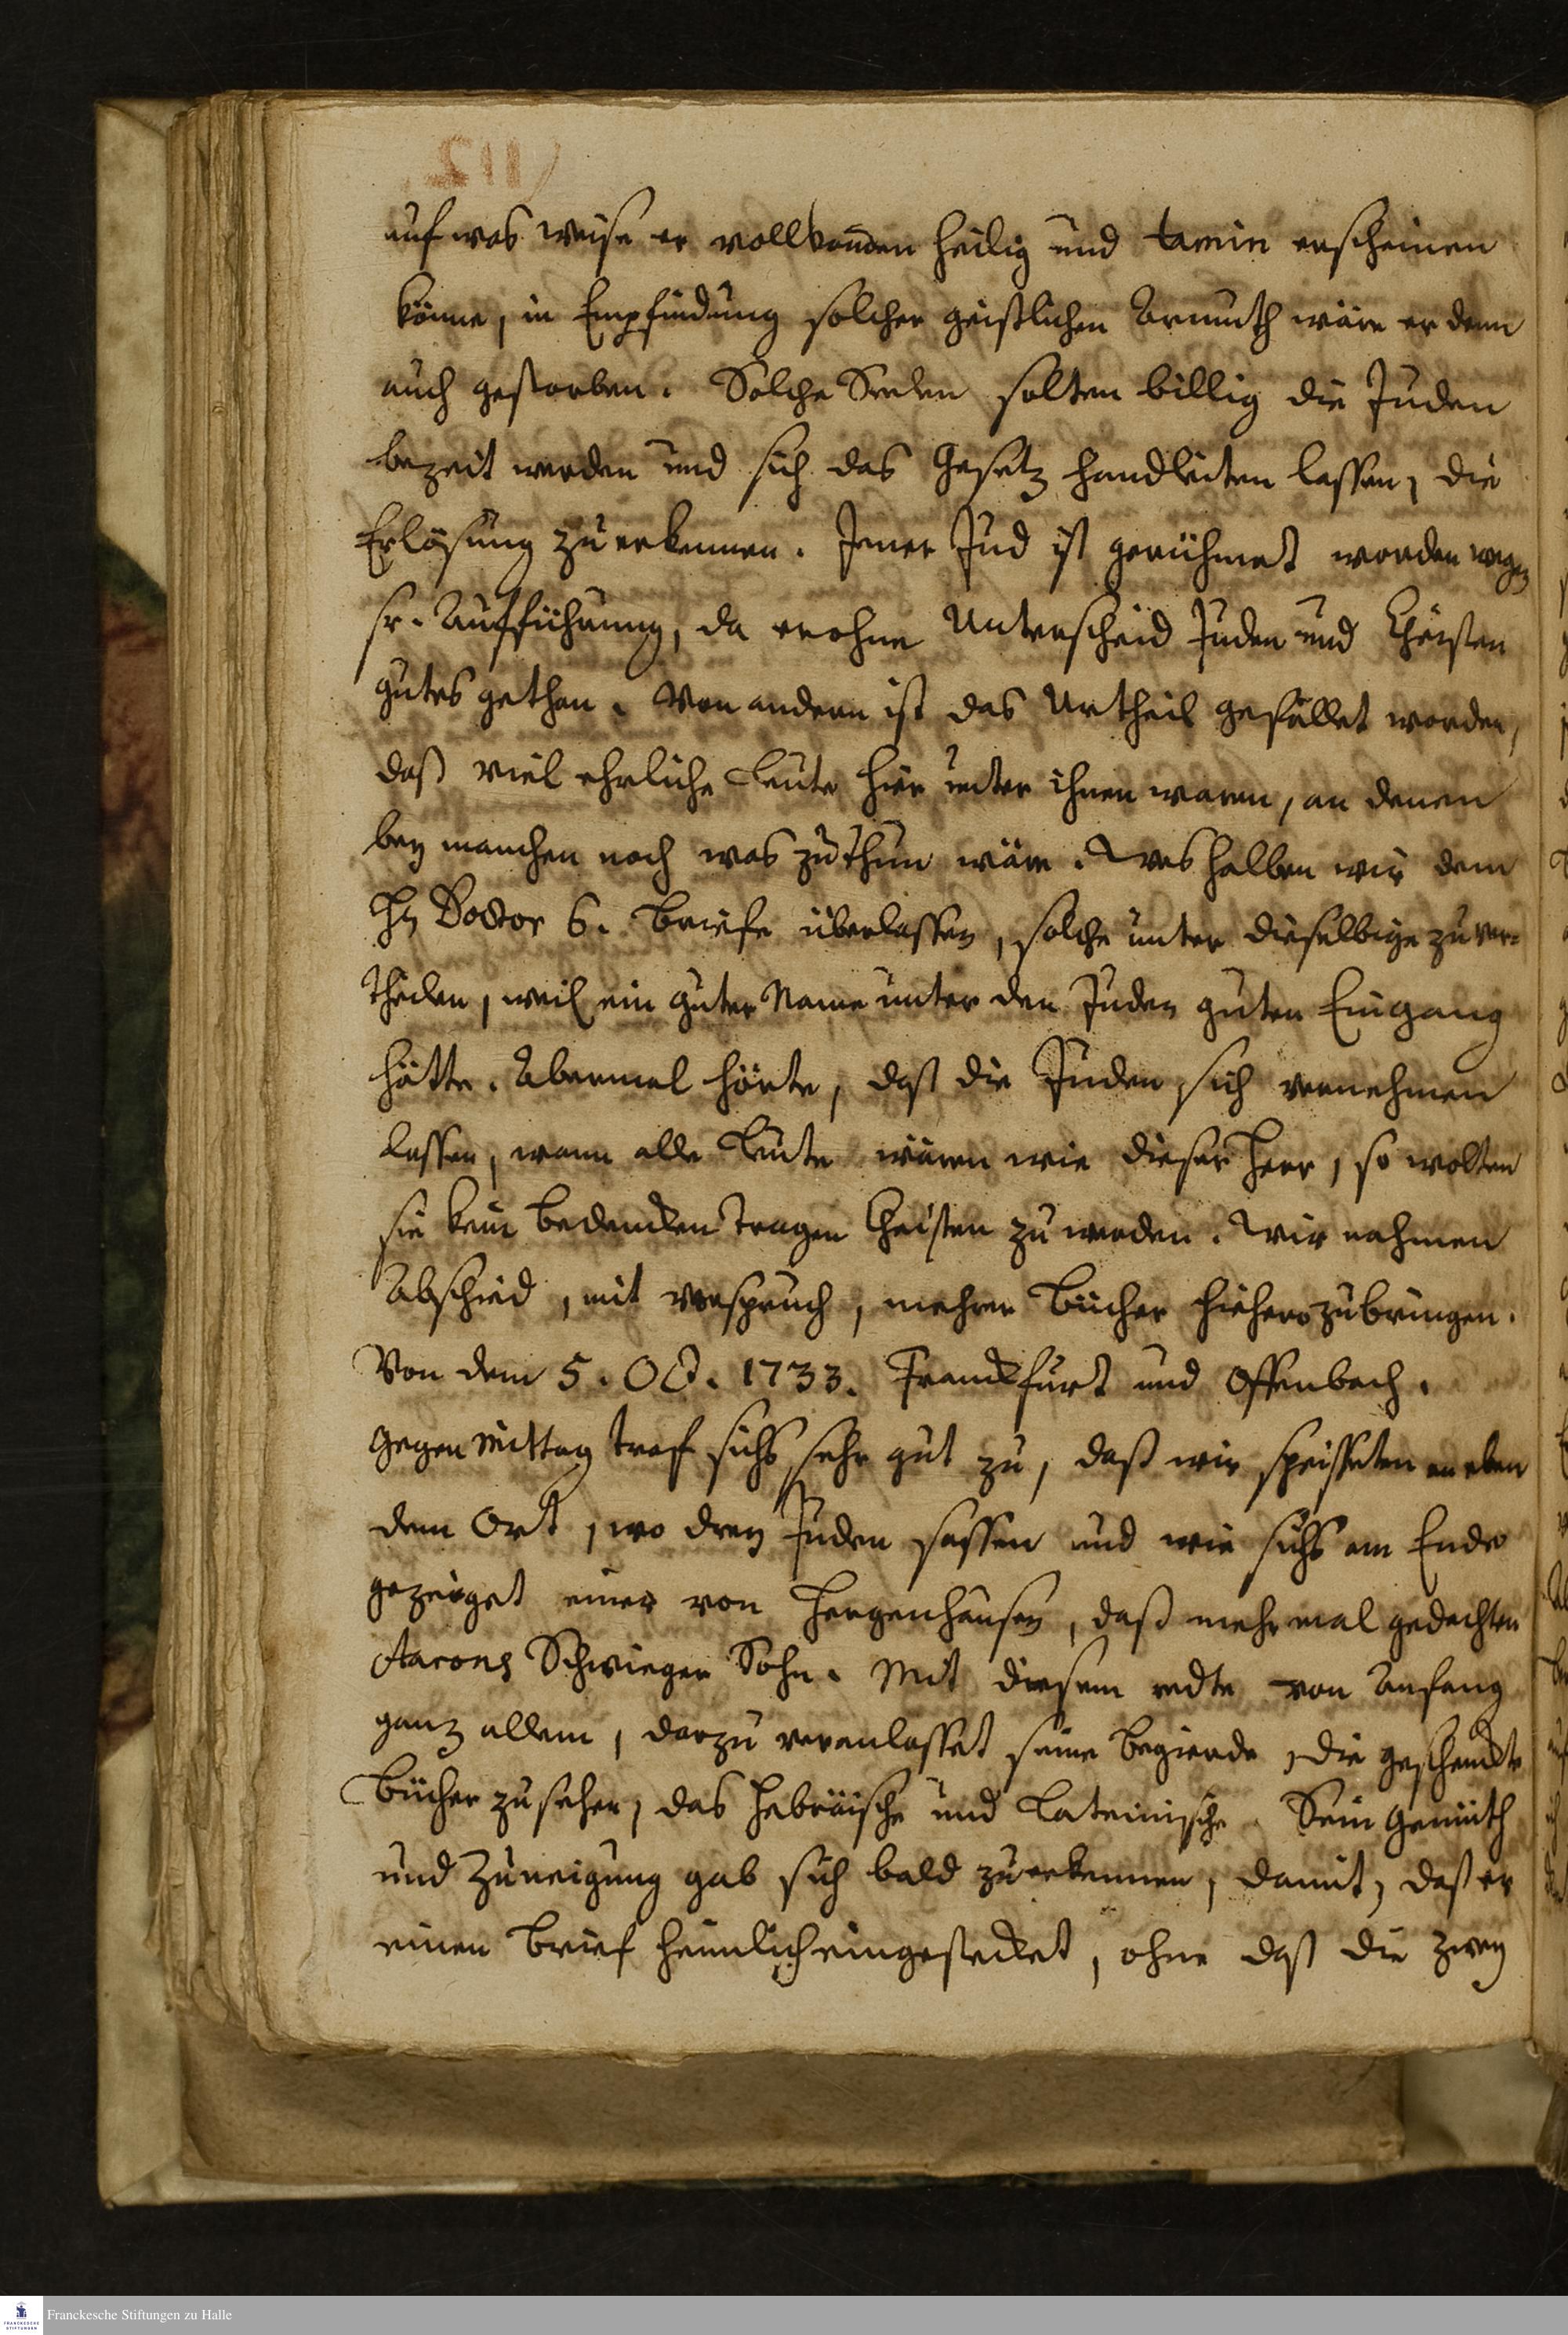 auf was weise er vollkom̅en heilig und tamim erscheinen
könne, in Empfindung solcher geistlichen Armuth wäre er denn
auch gestorben. Solche Seelen solten billig die Juden
bezeit werden und sich das Gesetz handleiten lassen, die
Erlösung zu erkennen. Jener Jud ist gerühmet worden wegen
sr. Aufführung, da er ohne Unterscheid Juden und Christen
gutes gethan. Von andern ist das Urtheil gefället worden,
daß viel ehrliche Leute hier unter ihnen waren, an denen
bey manchen noch was zu thun wäre. Weshalben wir dem
Hn Doctor 6. Briefe überlassen, solche unter dieselbige zu ver=
theilen, weil ein guter Name unter den Juden guten Eingang
hätte. Abermal hörte, daß die Juden sich vernehmen
lassen, wann alle Leute wären wie dieser Herr, so wolten
sie kein bedencken tragen Christen zu werden. Wir nahmen
Abschied, mit Verspruch, mehrer Bücher hieher zu bringen.
Von dem 5. Oct. 1733. Franckfurt und Offenbach.
Gegen Mittag traf sichs sehr gut zu, daß wir speiseten an eben
dem Ort, wo drey Juden sassen und wie sichs am Ende
gezeiget einer von Hergenhausen, daß mehrmal gedachten
Aarons Schwieger Sohn. Mit diesem redte von Anfang
ganz allein, darzu veranlasset seine Begierde, die geschenckte
Bücher zu sehen, das Hebräische und Lateinische. Sein Gemüth
und Zuneigung gab sich bald zu erkennen, damit, daß er
einen Brief heimlich eingestecket, ohne daß die zwey
Franckesche Stiftungen zu Halle